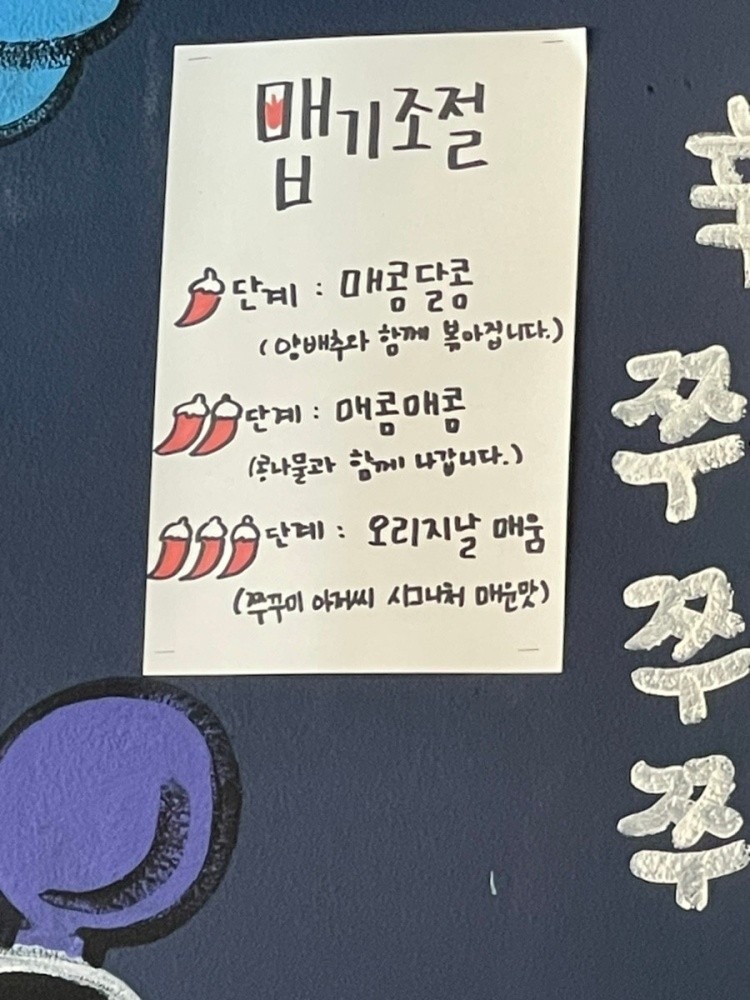 맵기조절
단계 : 매콤달콤
(양배추와 함께 볶아집니다.)
단계 : 매콤매콤
(콩나물과 함께 나갑니다.)
단계 : 오리지날 매움
(쭈꾸미 아저씨 시그니처 매운맛)
쭈
쭈
쭈